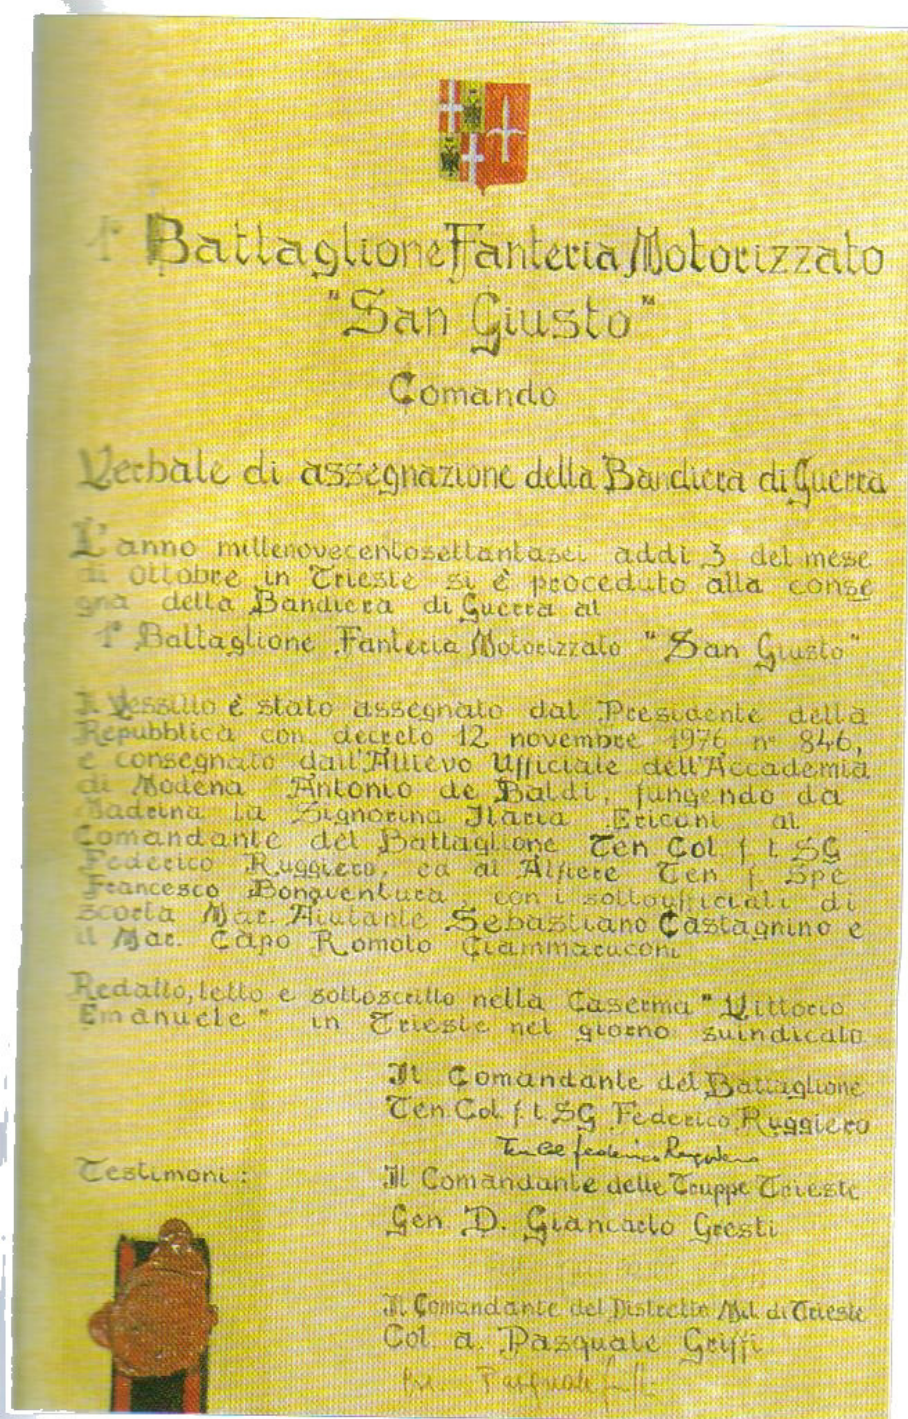 1° Battaglione Fanteria Motorizzato
"San Giusto"
Comando
Verbale di assegnazione della Bandiera di Guerra
L'anno millenovecentosettantasei addi 3 del mese
di ottobre in Trieste si è proceduto alla conse
gna della Bandiera di Guerra al
1° Battaglione Fanteria Motorizzato "San Giusto"
Il Vessillo è stato assegnato dal Presidente della
Repubblica con decreto 12 novembre 1976 n° 846,
e consegnato dall'Allievo Ufficiale dell'Accademia
di Modena Antonio de Baldi, fungendo da
Madrina la Signorina Ilaria Ericuni al
Comandante del Battaglione Ten Col f. t. SG
Federico Ruggiero, ed al Alfiere Ten f. Spe
Francesco Bonaventura, con i sottoufficiali di
scorta Mar. Aiutante Sebastiano Castagnino e
il Mar. Capo Romolo Giammaruconi
Redatto, letto e sottoscritto nella Caserma "Vittorio
Emanuele" in Trieste nel giorno suindicato
Il Comandante del Battaglione
Ten. Col f. t. SG Federico Ruggiero
Ten Col Federico Ruggiero
Testimoni :
Il Comandante delle Truppe Trieste
Gen. D. Giancarlo Gresti
Il Comandante del Distretto Mil di Trieste
Col. a. Pasquale Griffi
Pasquale